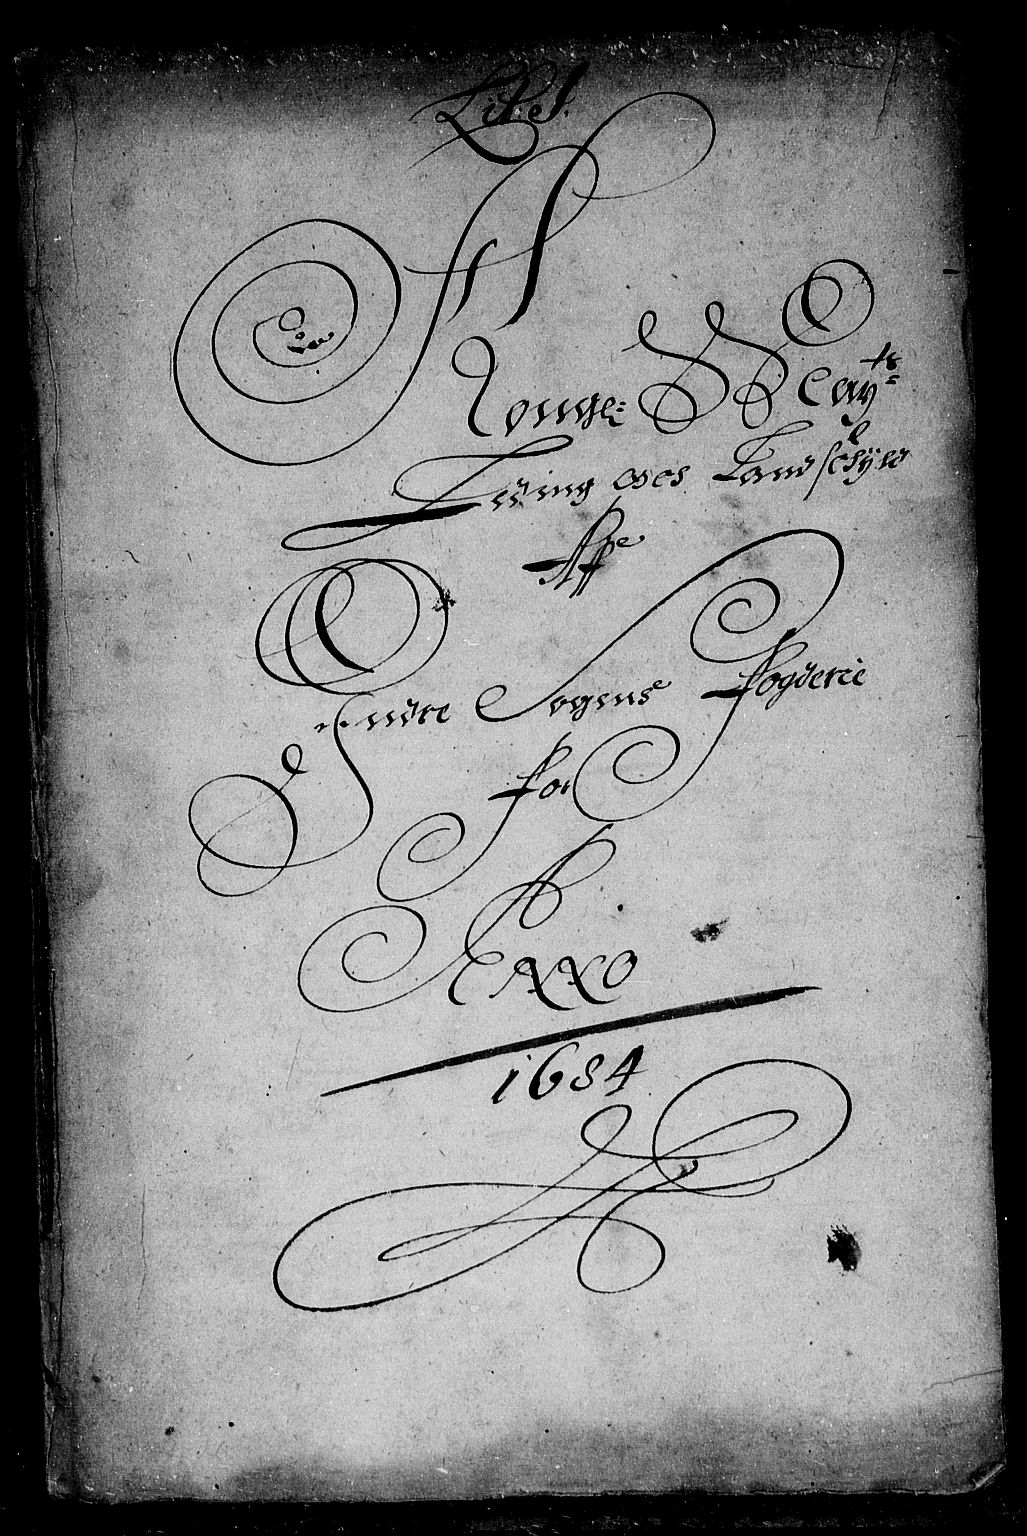 Lit. I.
Konge: Mayts:
Leding oc Landschyld
Aff
Indre Sogens Fogderie
for
Anno
1684